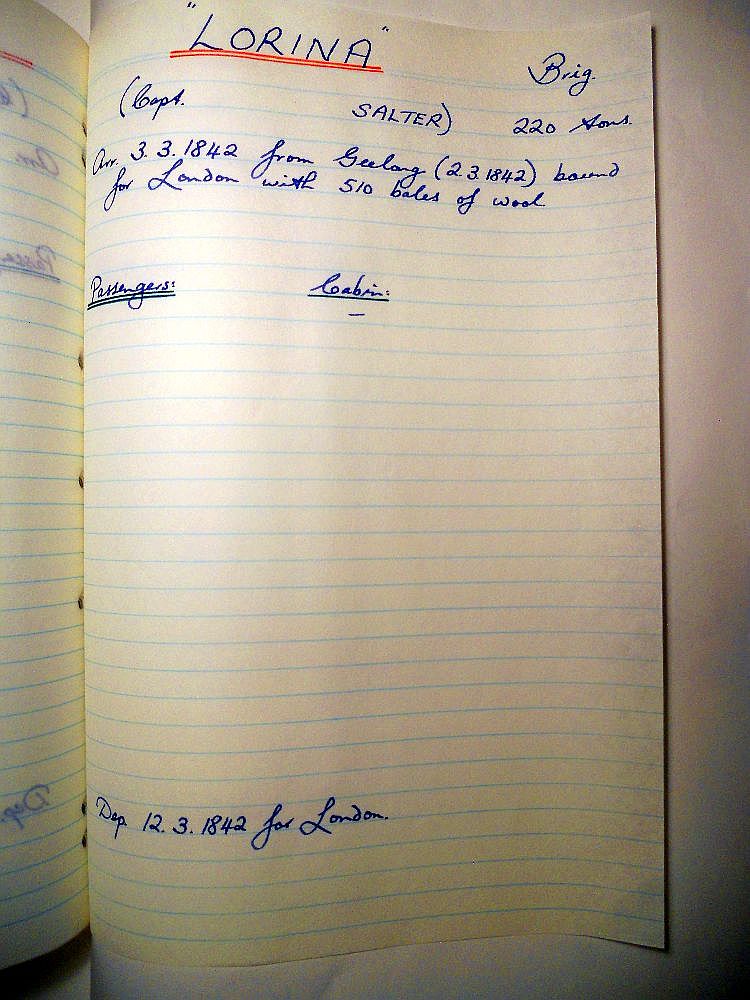 "LORINA"
Brig.
(Capt. SALTER) 220 tons.
Arr. 3.3.1842 from Geelong (2.3.1842) bound
for London with 510 bales of wool
Passengers: Cabin:
–
Dep. 12.3.1842 for London.